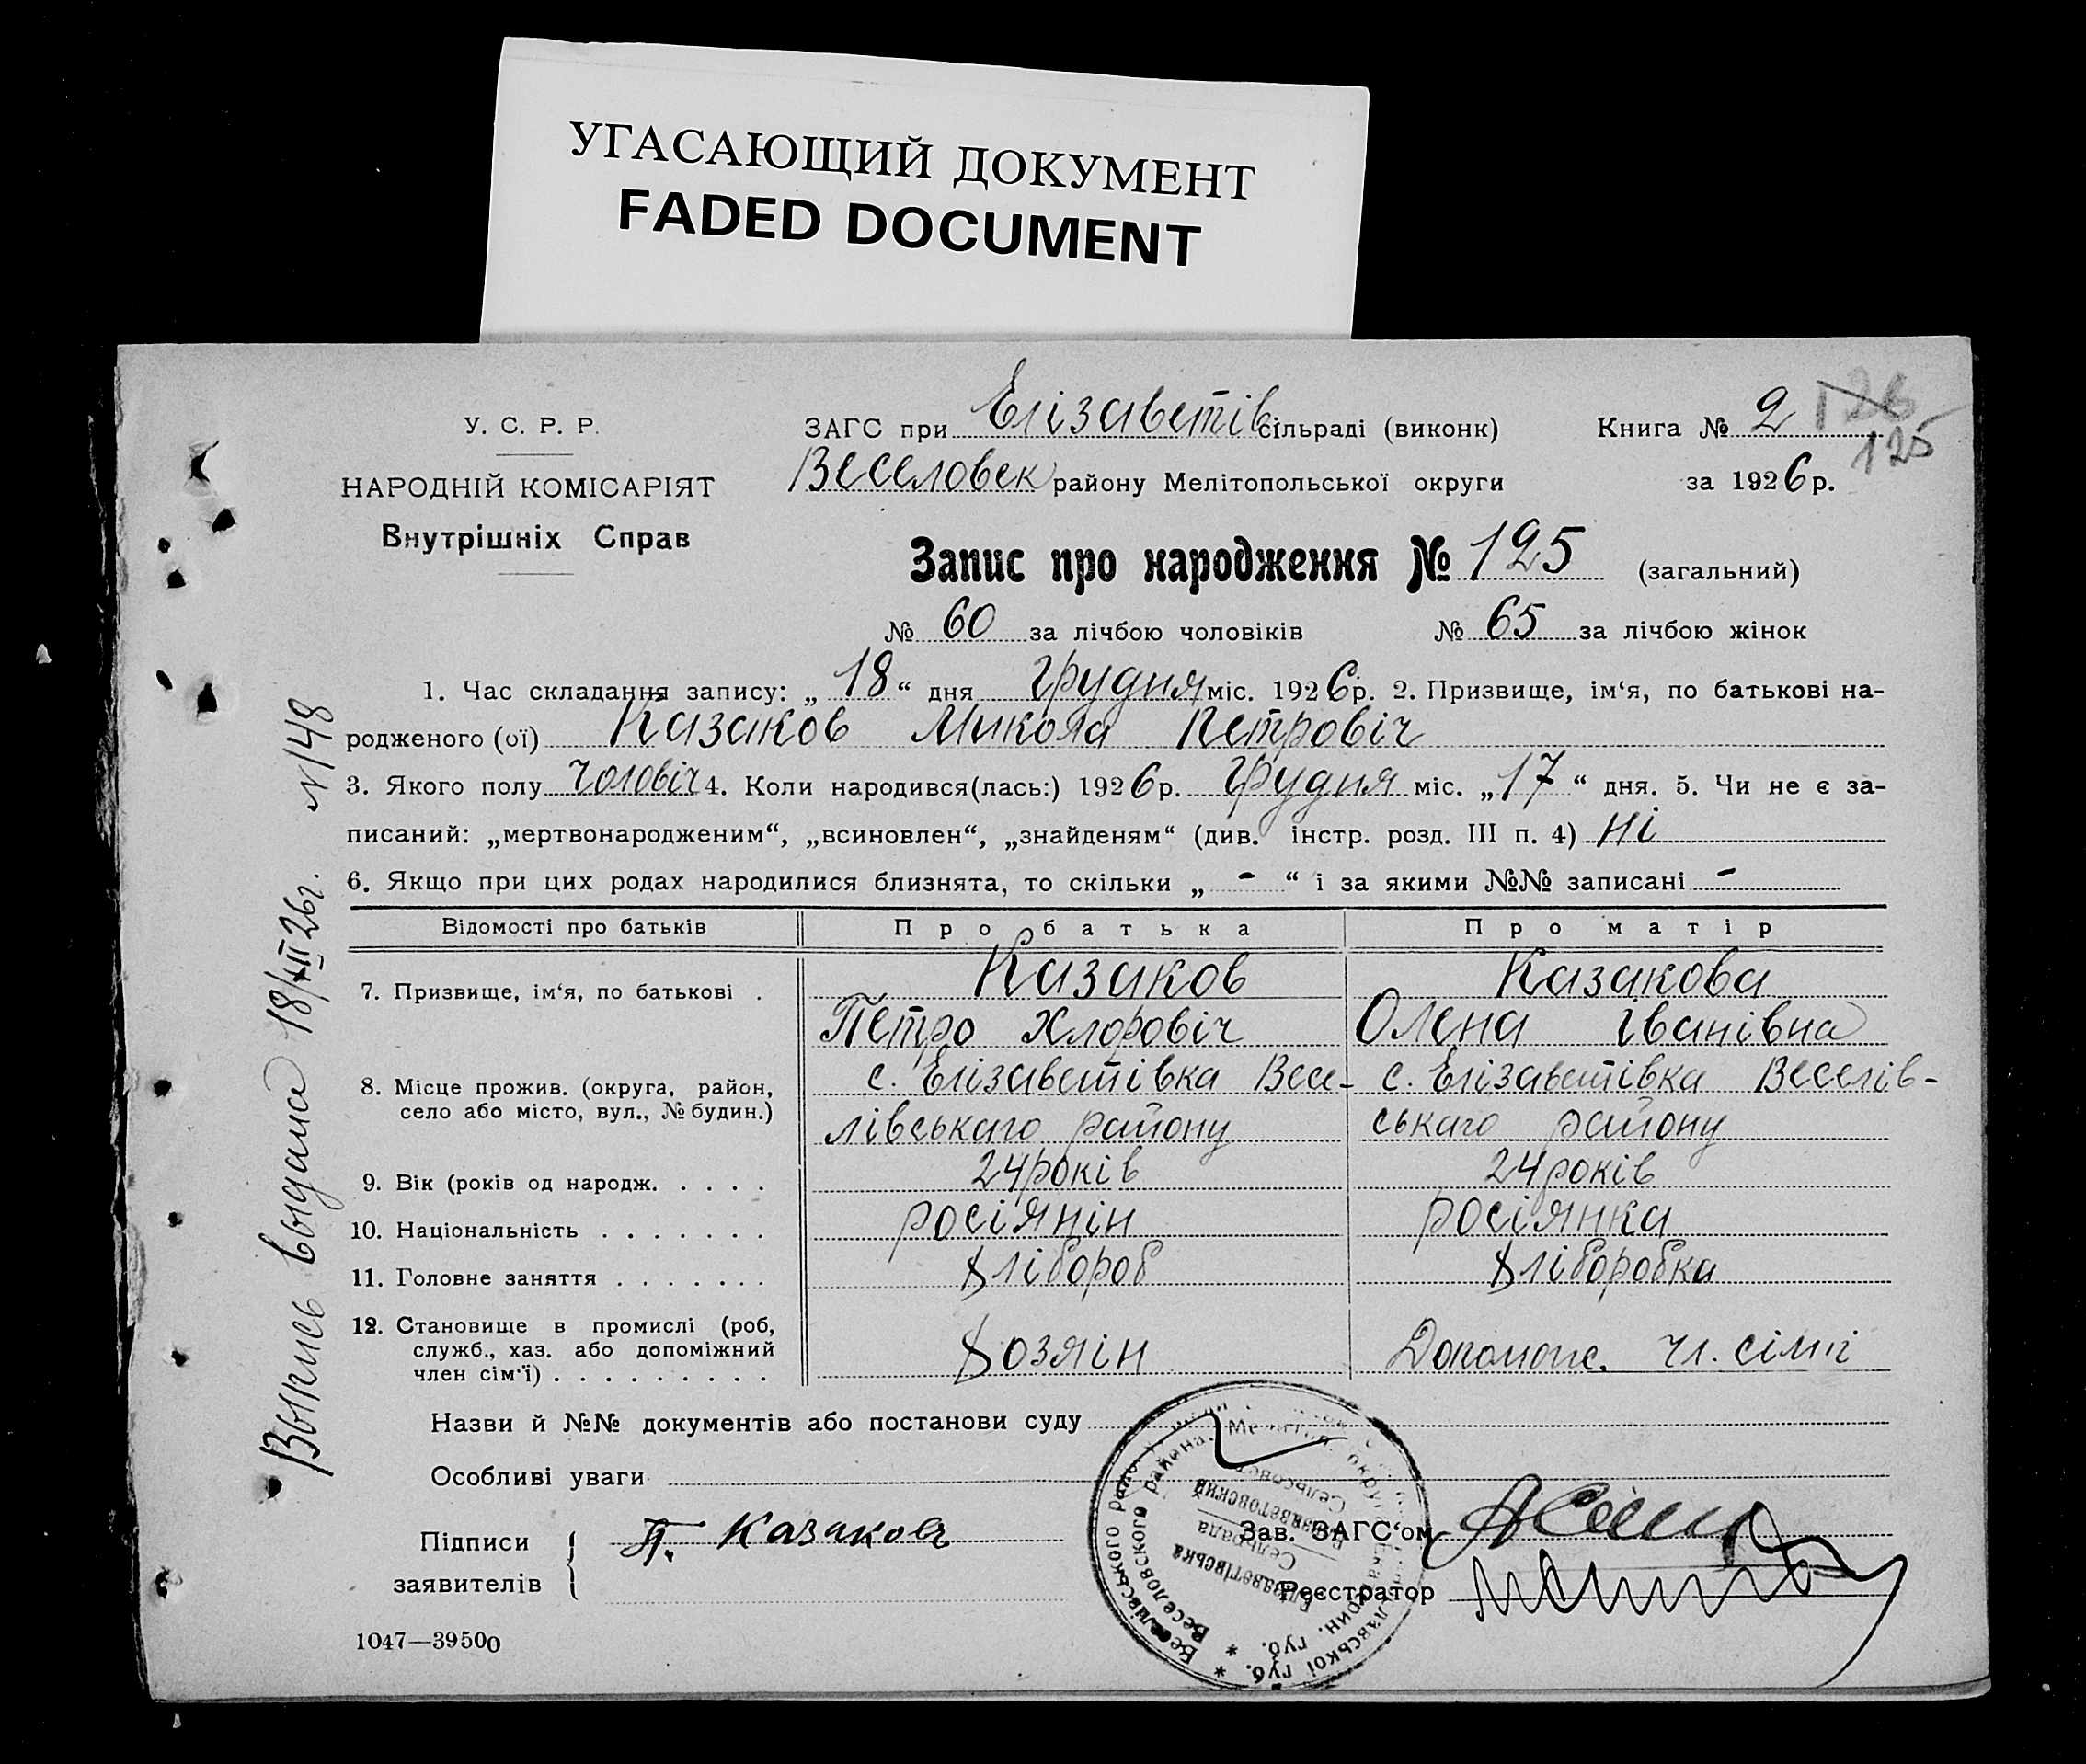 УГАСАЮЩИЙ ДОКУМЕНТ
FADED DOCUMENT
У. С. Р. Р.
НАРОДНІЙ КОМІСАРІЯТ
Внутрішніх Справ
ЗАГС при Елізаветів сільраді (виконк)
Веселовск району Мелітопольської округи
Книга № 2
126
125
за 1926 р.
Запис про народження № 125 (загальний)
№ 60 за лічбою чоловіків № 65 за лічбою жінок
1. Час складання запису: „ 18 “ дня грудня міс. 1926 р. 2. Призвище, ім‘я, по батькові на-
родженого (ої) Казаков Микола Петровіч
3. Якого полу чоловіч 4. Коли народився(лась:) 1926 р. грудня міс. „ 17 “ дня. 5. Чи не є за-
писаний: „мертвонародженим“, „всиновлен“, „знайденям“ (див. інстр. розд. III п. 4) ні
6. Якщо при цих родах народилися близнята, то скільки „ - “ і за якими №№ записані -
Відомості про батьків Про батька Про матір
7. Призвище, ім‘я, по батькові . Казаков Казакова
Петро Хлоровіч Олена Іванівна
8. Місце прожив. (округа, район, село або місто, вул., № будин.) с. Елізаветівка Весе- с. Елізаветівка Веселів-
лівськаго району ськаго району
9. Вік (років од народж. . . . . 24 років 24 років
10. Національність . . . . . . . росіянін росіянка
11. Головне заняття . . . . . . . Хлібороб Хліборобка
12. Становище в промислі (роб, служб., хаз. або допоміжний член сім‘ї) . . . . . . . . . Хозяін Допомож. чл. сімі
Назви й №№ документів або постанови суду
Особливі уваги
Підписи
заявителів
П. Казаков
Зав. ЗАГС‘ом
Реєстратор
1047—39500
Выпись выдана 18/XII 26г. №148
Веселівського
Веселовского района
Елизаветівська
Сельрада
Елизаветовский
Сельсовет